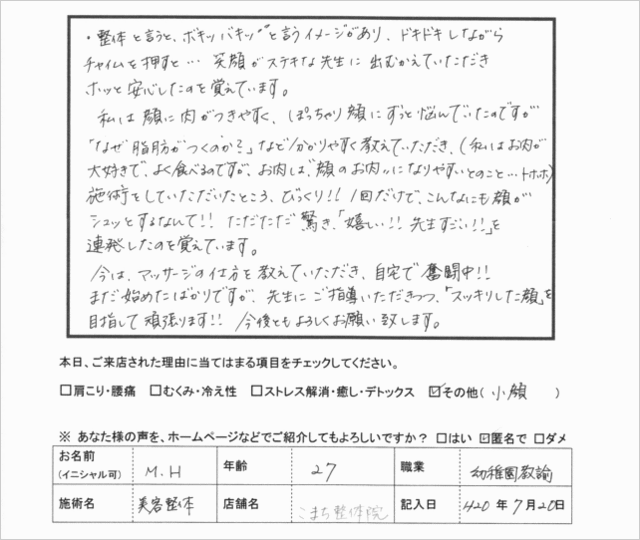 ・整体と言うと、ボキッバキッ"と言うイメージがあり、ドキドキしながら
チャイムを押すと… 笑顔がステキな先生に出むかえていただき
ホッと安心したのを覚えています。
私は顔に肉がつきやすく、ぽっちゃり顔にずっと悩んでいたのですが
「なぜ脂肪がつくのか？」など分かりやすく教えていただき、(私はお肉が
大好きで、よく食べるのですが、お肉は、"顔のお肉"になりやすいとのこと…トホホ)
施術をしていただいたところ、びっくり!! 1回だけで、こんなにも顔が
シュッとするなんて!! ただただ驚き、「嬉しい!! 先生すごい!!」を
連発したのを覚えています。
今は、マッサージの仕方を教えていただき、自宅で奮闘中!!
まだ始めたばかりですが、先生にご指導いただきつつ、「スッキリした顔」を
目指して頑張ります!! 今後ともよろしくお願い致します。
本日、ご来店された理由に当てはまる項目をチェックしてください。
□肩こり・腰痛 □むくみ・冷え性 □ストレス解消・癒し・デトックス ☑その他( 小顔 )
※ あなた様の声を、ホームページなどでご紹介してもよろしいですか？ □はい ☑匿名で □ダメ
お名前 (イニシャル可) M.H 年齢 27 職業 幼稚園教諭
施術名 美容整体 店舗名 こまち整体院 記入日 H20年7月20日